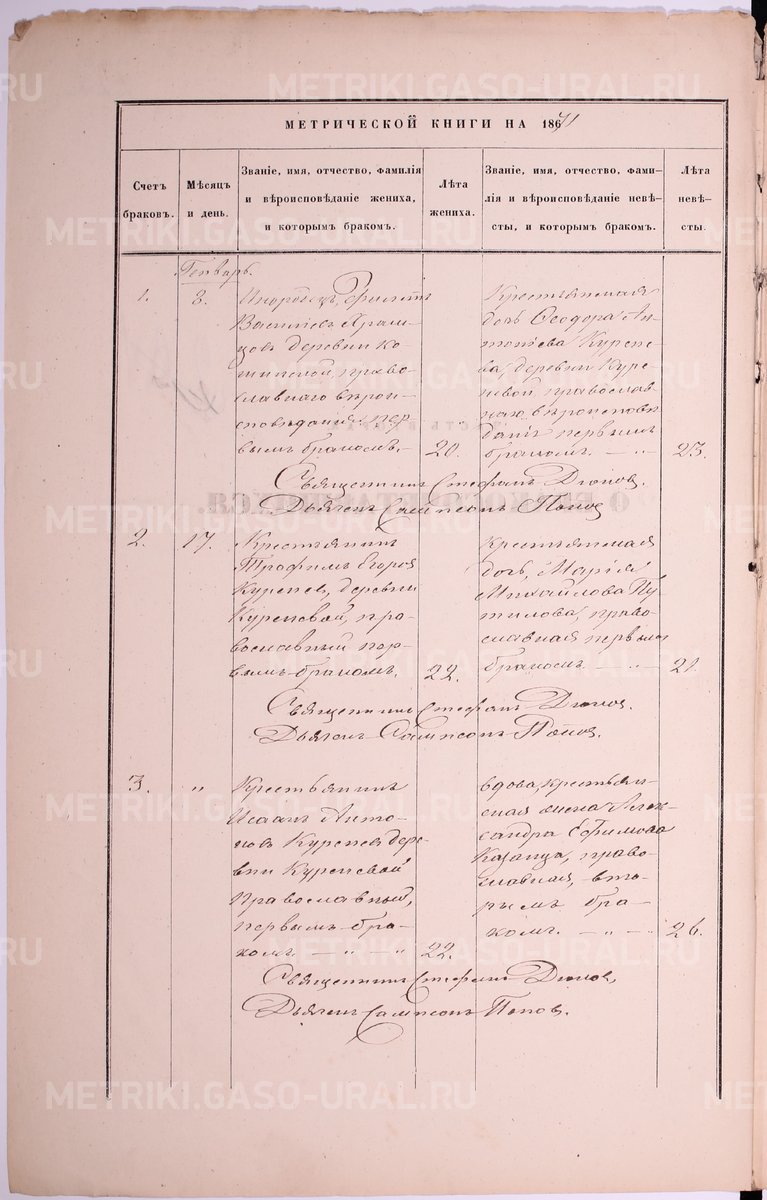 МЕТРИЧЕСКОЙ КНИГИ НА 18671
Счетъ браковъ.
Мѣсяцъ и день.
Званіе, имя, отчество, фамилія
и вѣроисповѣданіе жениха,
и которымъ бракомъ.
Лѣта жениха.
Званіе, имя, отчество, фами-
лія и вѣроисповѣданіе невѣ-
сты, и которымъ бракомъ.
Лѣта невѣ-
сты.
Генварь.
1.
8.
Инородецъ, Филиппъ
Васильевъ Храм-
цовъ деревни Ко-
право-
славнаго вѣрои-
сповѣданія, пер-
вымъ бракомъ.
20.
Крестьянская
дочь Ѳеодора Ан-
тонiева Курене-
ва, деревни Куре-
невой, православ-
наго вѣроисповѣ-
данiя первымъ
бракомъ. — „ —
23.
Священникъ Стефанъ
Дьяконъ Сампсонъ Попов
2.
17.
Крестьянинъ
Трофимъ Егоров
Куренев, деревни
Куреновой, пра-
вославный пер-
вымъ бракомъ.
22.
Крестьянская
дочь, Марія
Михайлова Пу-
тилова, право-
славная первымъ
бракомъ. — „ —
21.
Священникъ Стефанъ
Дьяконъ Сампсонъ Попов.
3.
„
Крестьянинъ
Исаакъ Анто-
новъ Куренев дере-
вни Куреневой
Православный,
первымъ бра-
комъ. — „ — „
22.
вдова, крестьян-
ская жена Алек-
сандра Ефимова
Казанца, право-
славная, вто-
рымъ бра-
комъ. — „ — „
26.
Священникъ Стефанъ
Дьяконъ Сампсонъ Попов.
METRIKI.GASO-URAL.RU